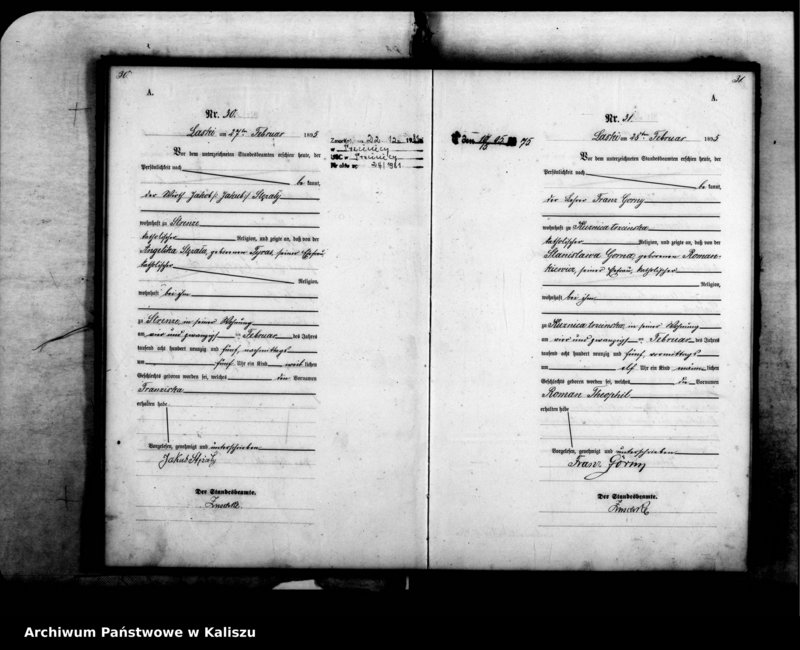 30.
A.
Nr. 30.
Laski am 27ten Februar 1895
Vor dem unterzeichneten Standesbeamten erschien heute, der
Persönlichkeit nach
be kannt,
der Wirth Jakob / Jakub /
wohnhaft zu Strenze
katholischer Religion, und zeigte an, daß von der
Angelika geborenen seiner Ehefrau
katholischer
Religion,
wohnhaft bei ihm
zu Strenze, in seiner Wohnung
am vier und zwanzigsten Februar des Jahres
tausend acht hundert neunzig und fünf nachmittags
um fünf Uhr ein Kind weib lichen
Geschlechts geboren worden sei, welches den Vornamen
Franziska
erhalten habe
Vorgelesen, genehmigt und unterschrieben
Jakub
Der Standesbeamte.
22
w
USC w
Nr aktu
31.
A.
Nr. 31.
Laski am 25ten Februar 1895
Vor dem unterzeichneten Standesbeamten erschien heute, der
Persönlichkeit nach
be kannt,
der Franz Gorny
wohnhaft zu Kuznica
katholischer Religion, und zeigte an, daß von der
Stanislawa Gorna, geborenen Roman-
kiewicz, seiner Ehefrau, katholischer
Religion,
wohnhaft bei ihm
zu Kuznica in seiner Wohnung
am vier und zwanzigsten Februar des Jahres
tausend acht hundert neunzig und fünf vormittags
um elf Uhr ein Kind männ lichen
Geschlechts geboren worden sei, welches die Vornamen
Roman Theophil
erhalten habe
Vorgelesen, genehmigt und unterschrieben
Franz Górny
Der Standesbeamte.
Archiwum Państwowe w Kaliszu